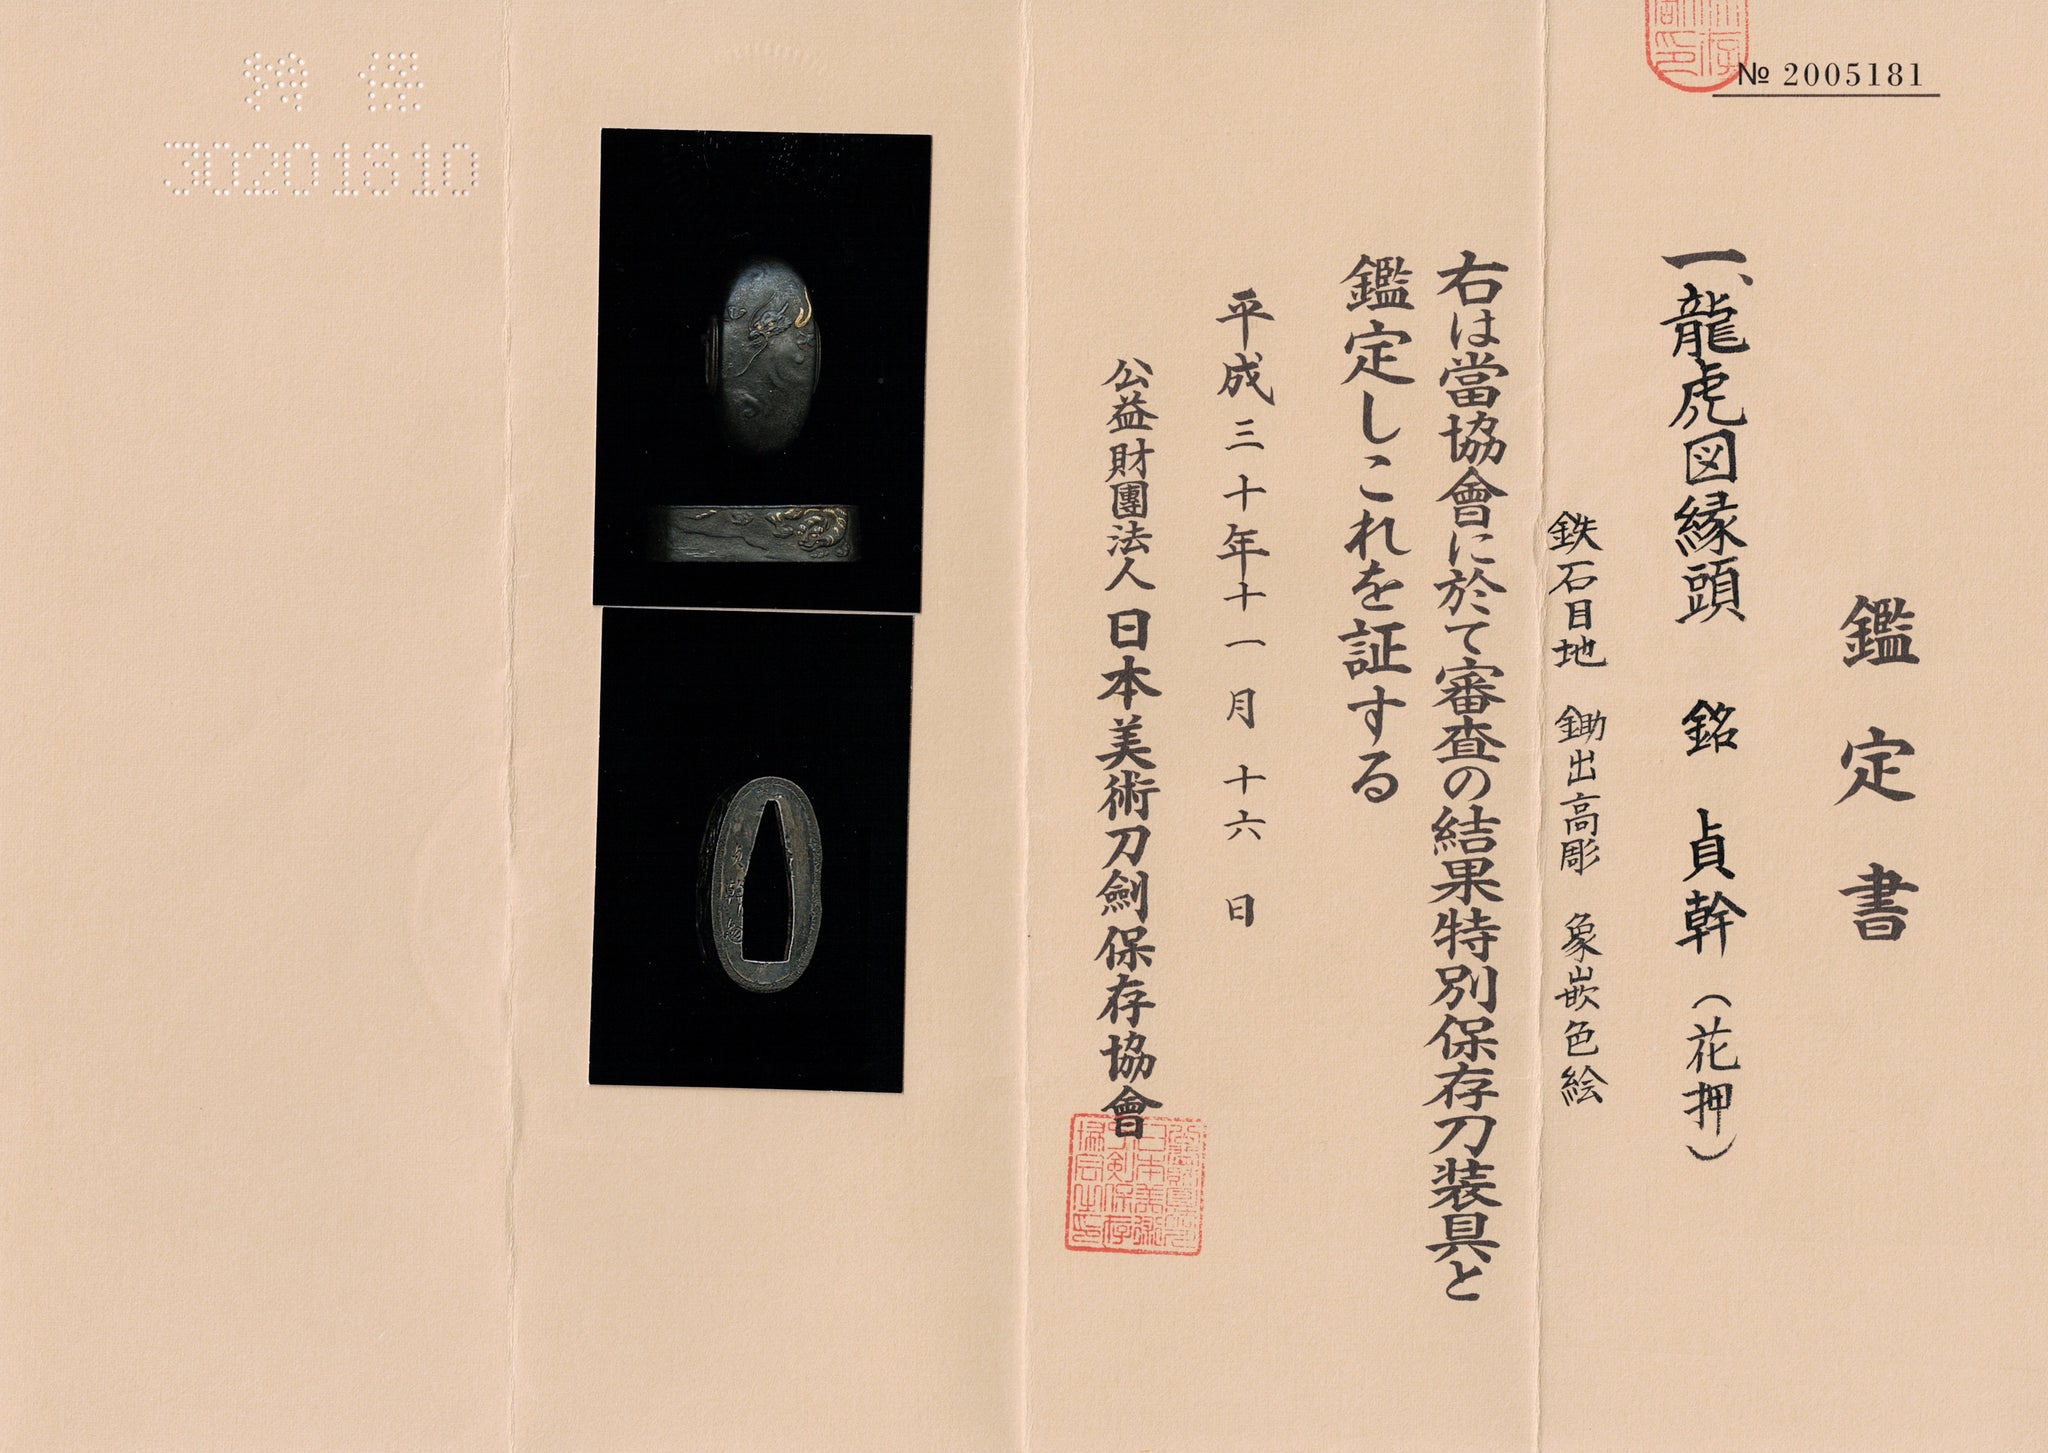 № 2005181
鑑定書
一、龍虎図縁頭 銘 貞幹(花押)
鉄石目地 鋤出高彫 象嵌色絵
右は當協會に於て審査の結果特別保存刀装具と
鑑定しこれを証する
平成三十年十一月十六日
公益財團法人 日本美術刀劍保存協會
特保
30201810